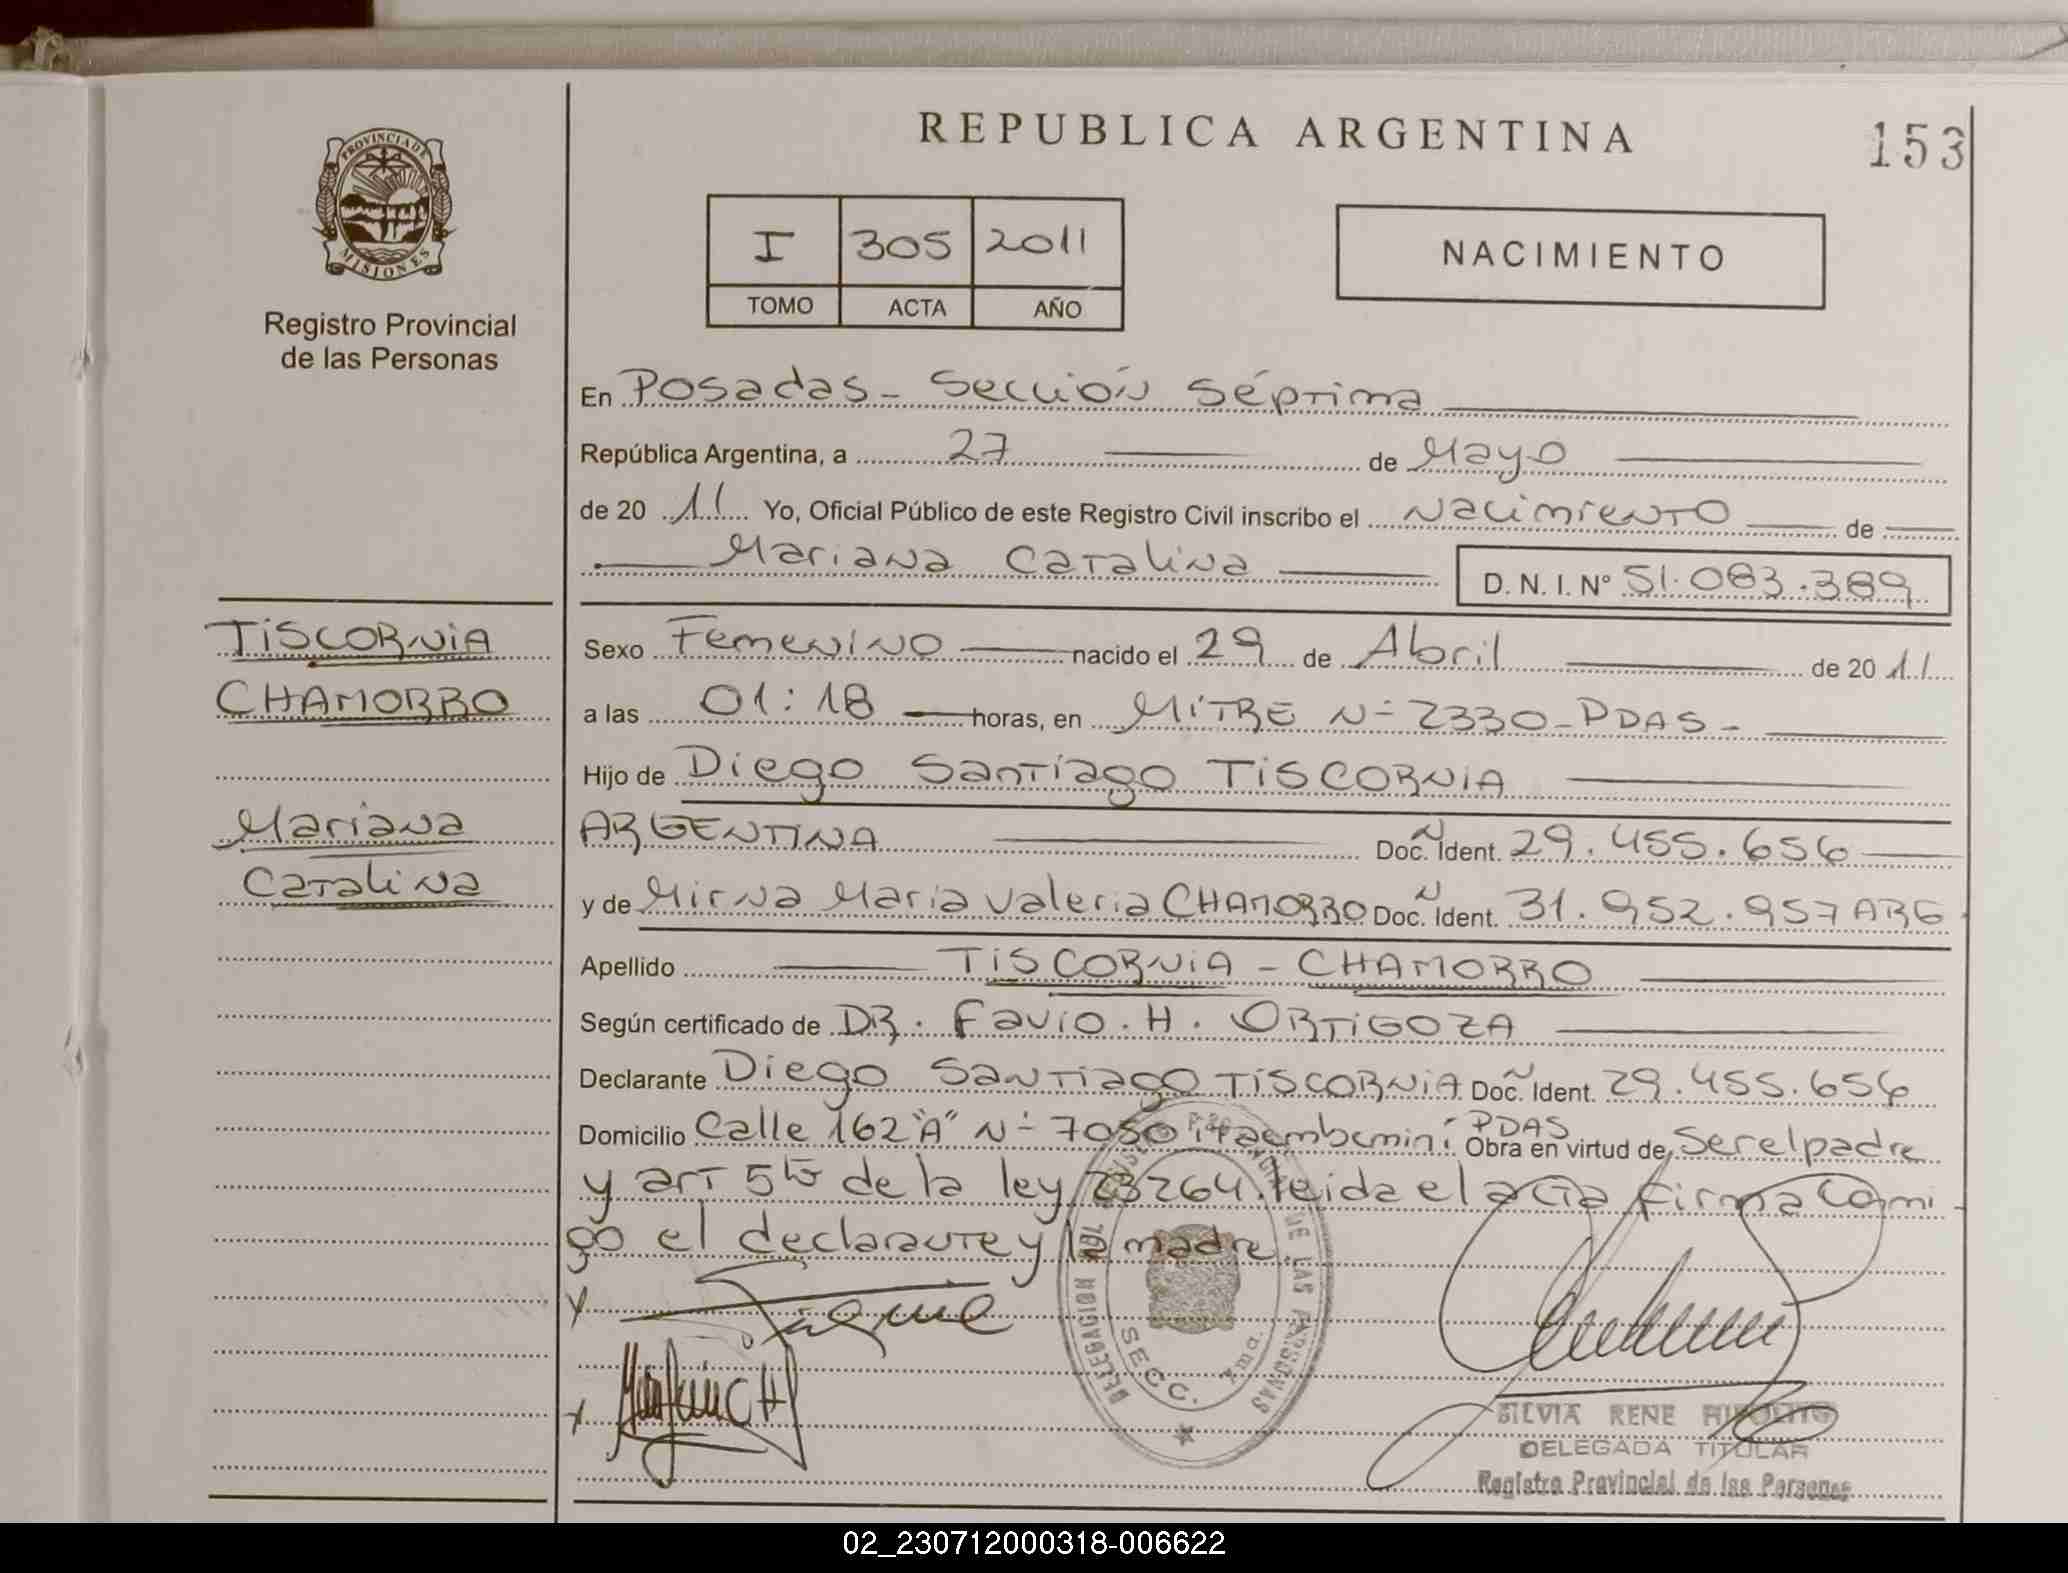 PROVINCIA DE
MISIONES
Registro Provincial
de las Personas
TISCORNIA
CHAMORRO
Mariana
Catalina
REPUBLICA ARGENTINA
153
I 305 2011
TOMO ACTA AÑO
NACIMIENTO
En Posadas - Sección Séptima
República Argentina, a 27 de Mayo
de 20 11 Yo, Oficial Público de este Registro Civil inscribo el Nacimiento de
Mariana Catalina D. N. I. Nº 51.083.389
Sexo Femenino nacido el 29 de Abril de 20 11
a las 01:18 horas, en MITRE Nº 2330 - PDAS -
Hijo de Diego Santiago TISCORNIA
ARGENTINA Doc. Ident. 29.455.656
y de Mirna Maria Valeria CHAMORRO Doc. Ident. 31.952.957 ARG.
Apellido TISCORNIA - CHAMORRO
Según certificado de DR. Favio. H. ORTIGOZA
Declarante Diego Santiago TISCORNIA Doc. Ident. 29.455.656
Domicilio Calle 162 "A" Nº 7050 itaembemini PDAS Obra en virtud de Ser el padre
y art 5to de la ley 23264. leida el acta firma Comi-
go el declarante y la madre.
x
x
DELEGACION REGISTRO PROVINCIAL DE LAS PERSONAS
SECC. 7ma
SILVIA RENE HIPOLITO
DELEGADA TITULAR
Registro Provincial de las Personas
02_230712000318-006622